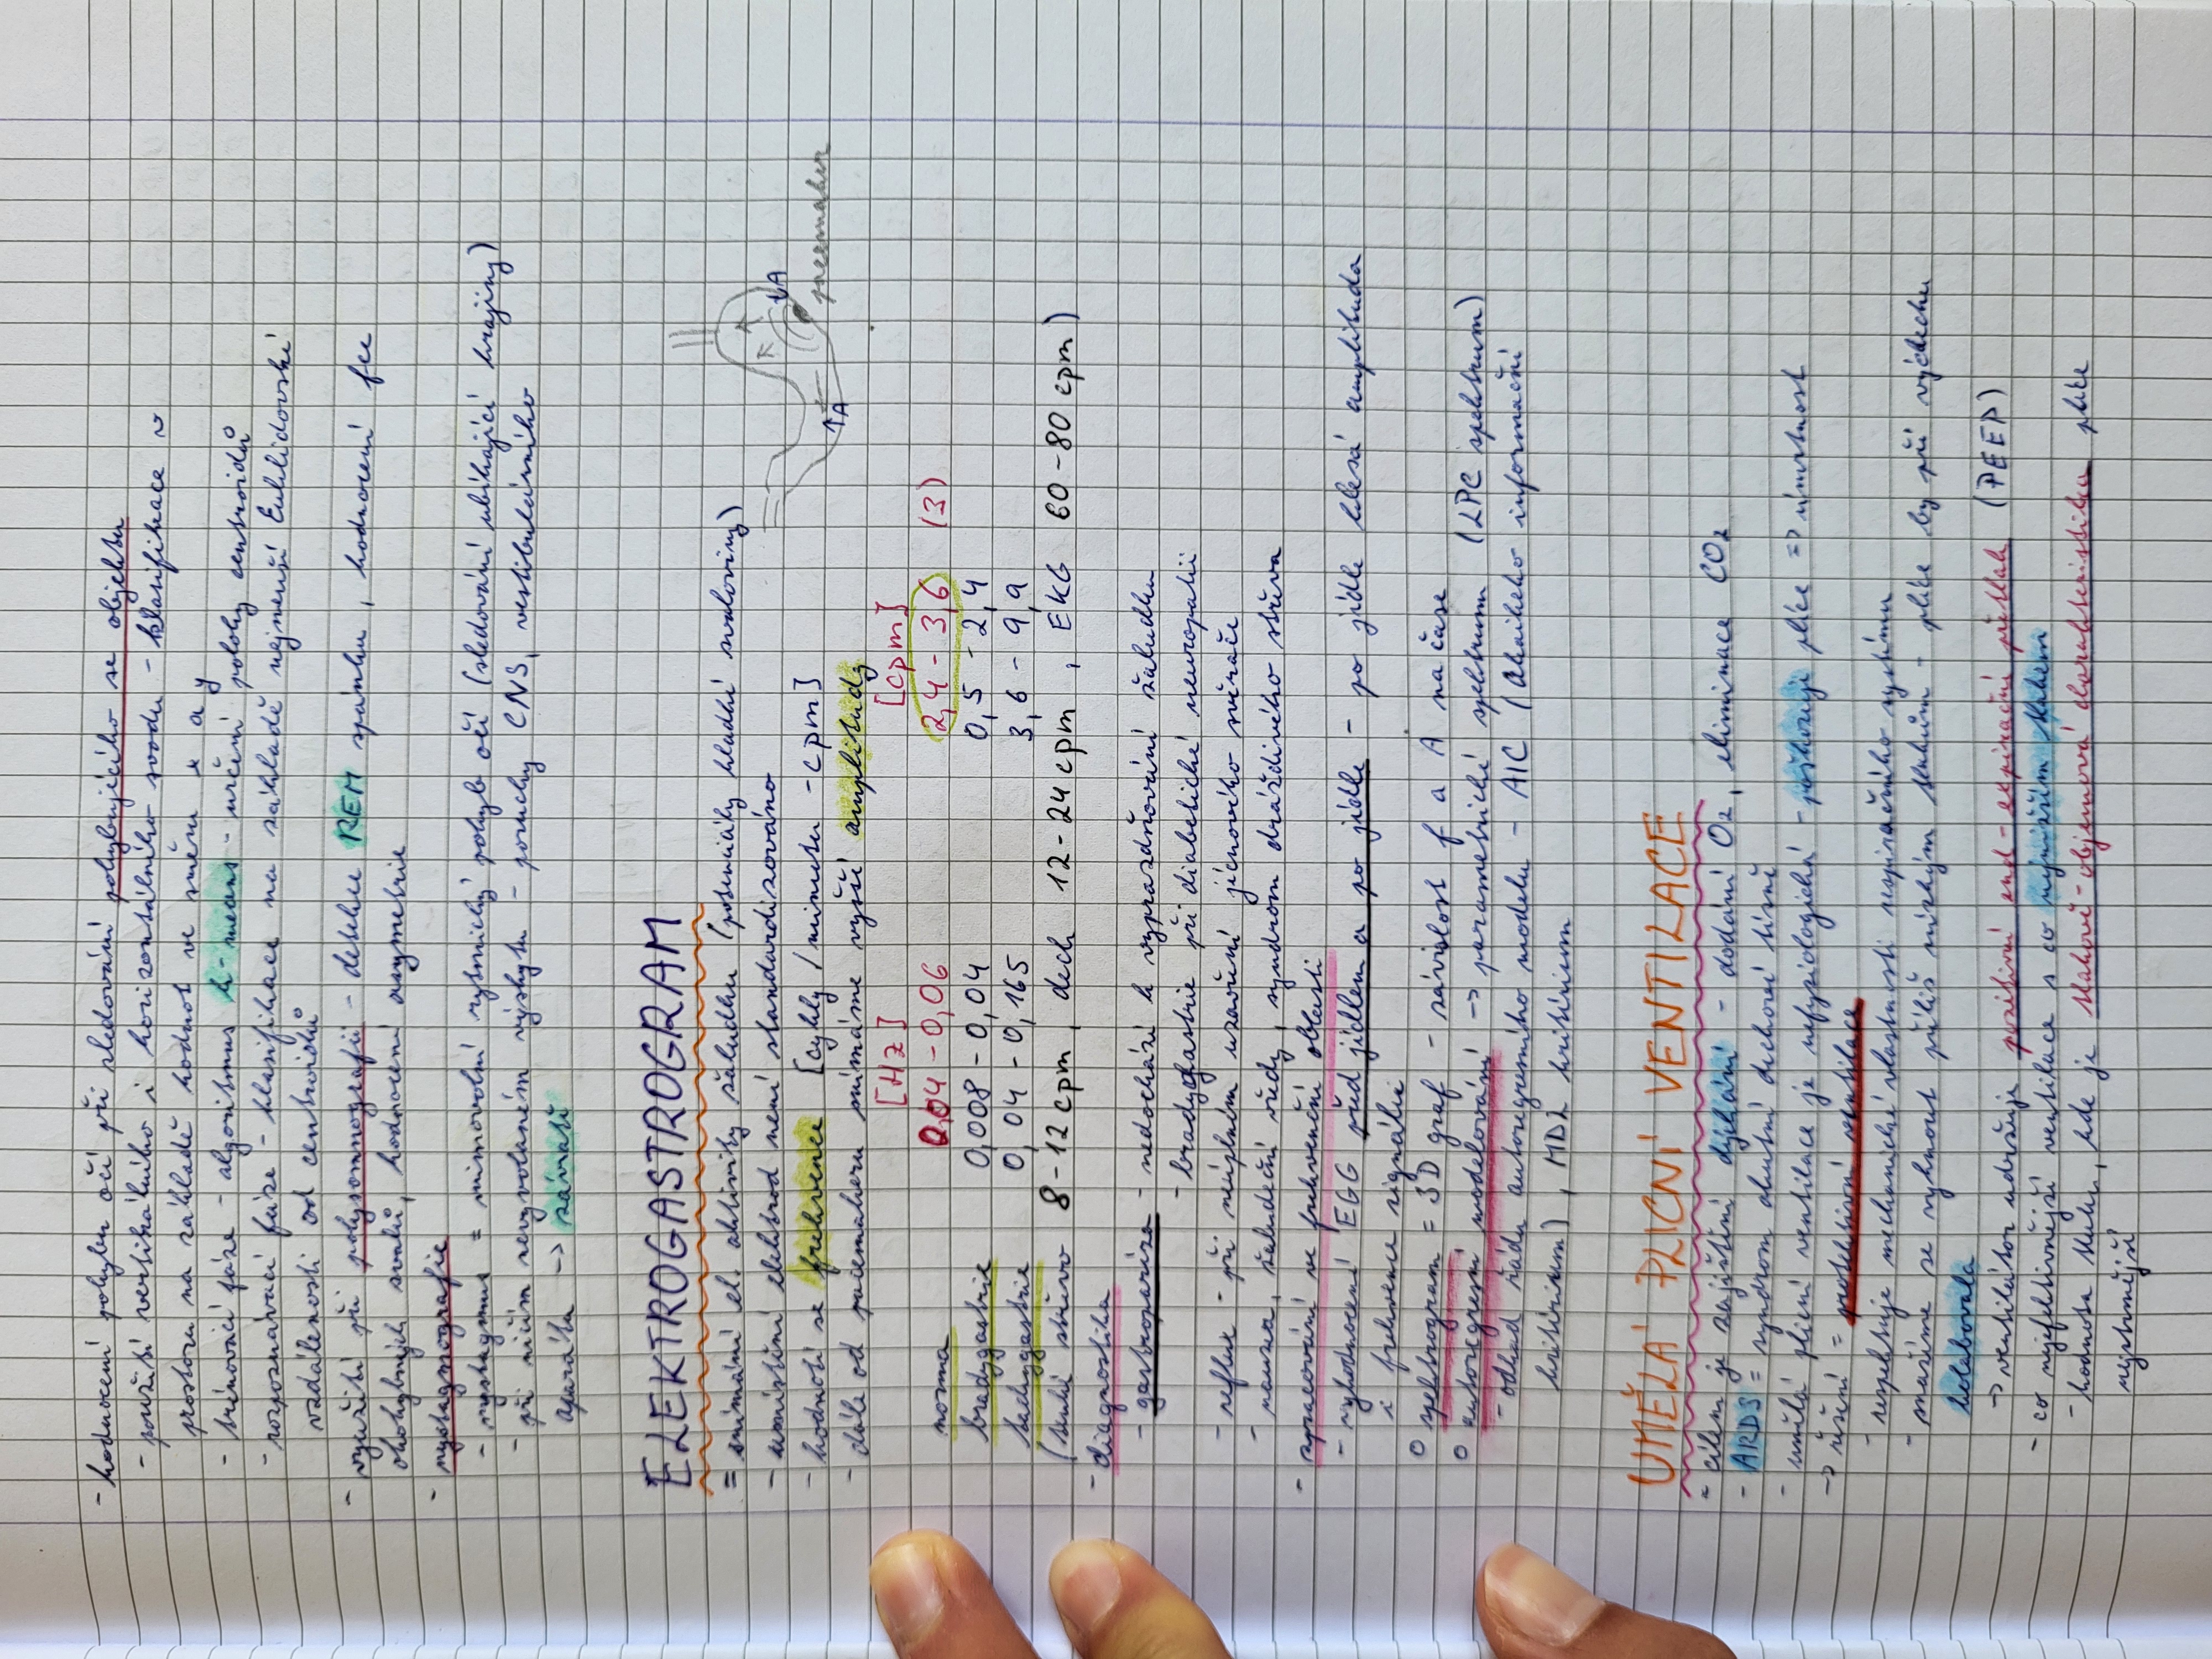 - hodnocení pohybu očí při sledování pohybujícího se objektu
- použití vertikálního i horizontálního svodu - klasifikace v
prostoru na základě hodnot ve směru x a y
- trénovací fáze - algoritmus k-means - určení polohy centroidů
- rozpoznávací fáze - klasifikace na základě nejmenší Euklidovské
vzdálenosti od centroidů
- využití při polysomnografii - detekce REM spánku, hodnocení fce
okohybných svalů, hodnocení asymetrie
- nystagmografie
- nystagmus = mimovolní rytmický pohyb očí (sledování ubíhající krajiny)
- při ničím nevyvolaném výskytu - poruchy CNS, vestibulárního
aparátu -> závratě
ELEKTROGASTROGRAM
= snímání el. aktivity žaludku (potenciály hladké svaloviny)
- umístění elektrod není standardizováno
- hodnotí se frekvence [cykly/minutu - cpm]
- dále od pacemakeru snímáme vyšší amplitudy
↓A
pacemaker
↑A
[Hz] [cpm]
norma 0,04 - 0,06 2,4 - 3,6 (3)
bradygastrie 0,008 - 0,04 0,5 - 2,4
tachygastrie 0,04 - 0,165 3,6 - 9,9
(tenké střevo 8-12 cpm, dech 12-24 cpm, EKG 60-80 cpm)
- diagnostika
- gastroparéza - nedochází k vyprazdňování žaludku
- bradygastrie při diabetické neuropatii
- reflux - při neúplném uzavření jícnového svěrače
- nauzea, žaludeční vředy, syndrom dráždivého střeva
- zpracování ve frekvenční oblasti
- vyhodnocení EGG před jídlem a po jídle - po jídle klesá amplituda
i frekvence signálu
○ spektrogram = 3D graf - závislost f a A na čase
○ autoregresní modelování -> parametrické spektrum (LPC spektrum)
- odhad řádu autoregresního modelu - AIC (Akaikeho informační
kritérium), MDL kritérium
UMĚLÁ PLICNÍ VENTILACE
- cílem je zajištění dýchání - dodání O2, eliminace CO2
- ARDS = syndrom akutní dechové tísně
- umělá plicní ventilace je nefyziologická - poškozuje plíce => úmrtnost
-> řešení = protektivní ventilace
- respektuje mechanické vlastnosti respiračního systému
- snažíme se vyhnout příliš nízkým tlakům - plíce by při výdechu
kolabovala
-> ventilátor udržuje pozitivní end-expirační přetlak (PEEP)
- co nejefektivnější ventilace s co nejnižším tlakem
- hodnota tlaku, kde je tlakově-objemová charakteristika plíce
nejstrmější